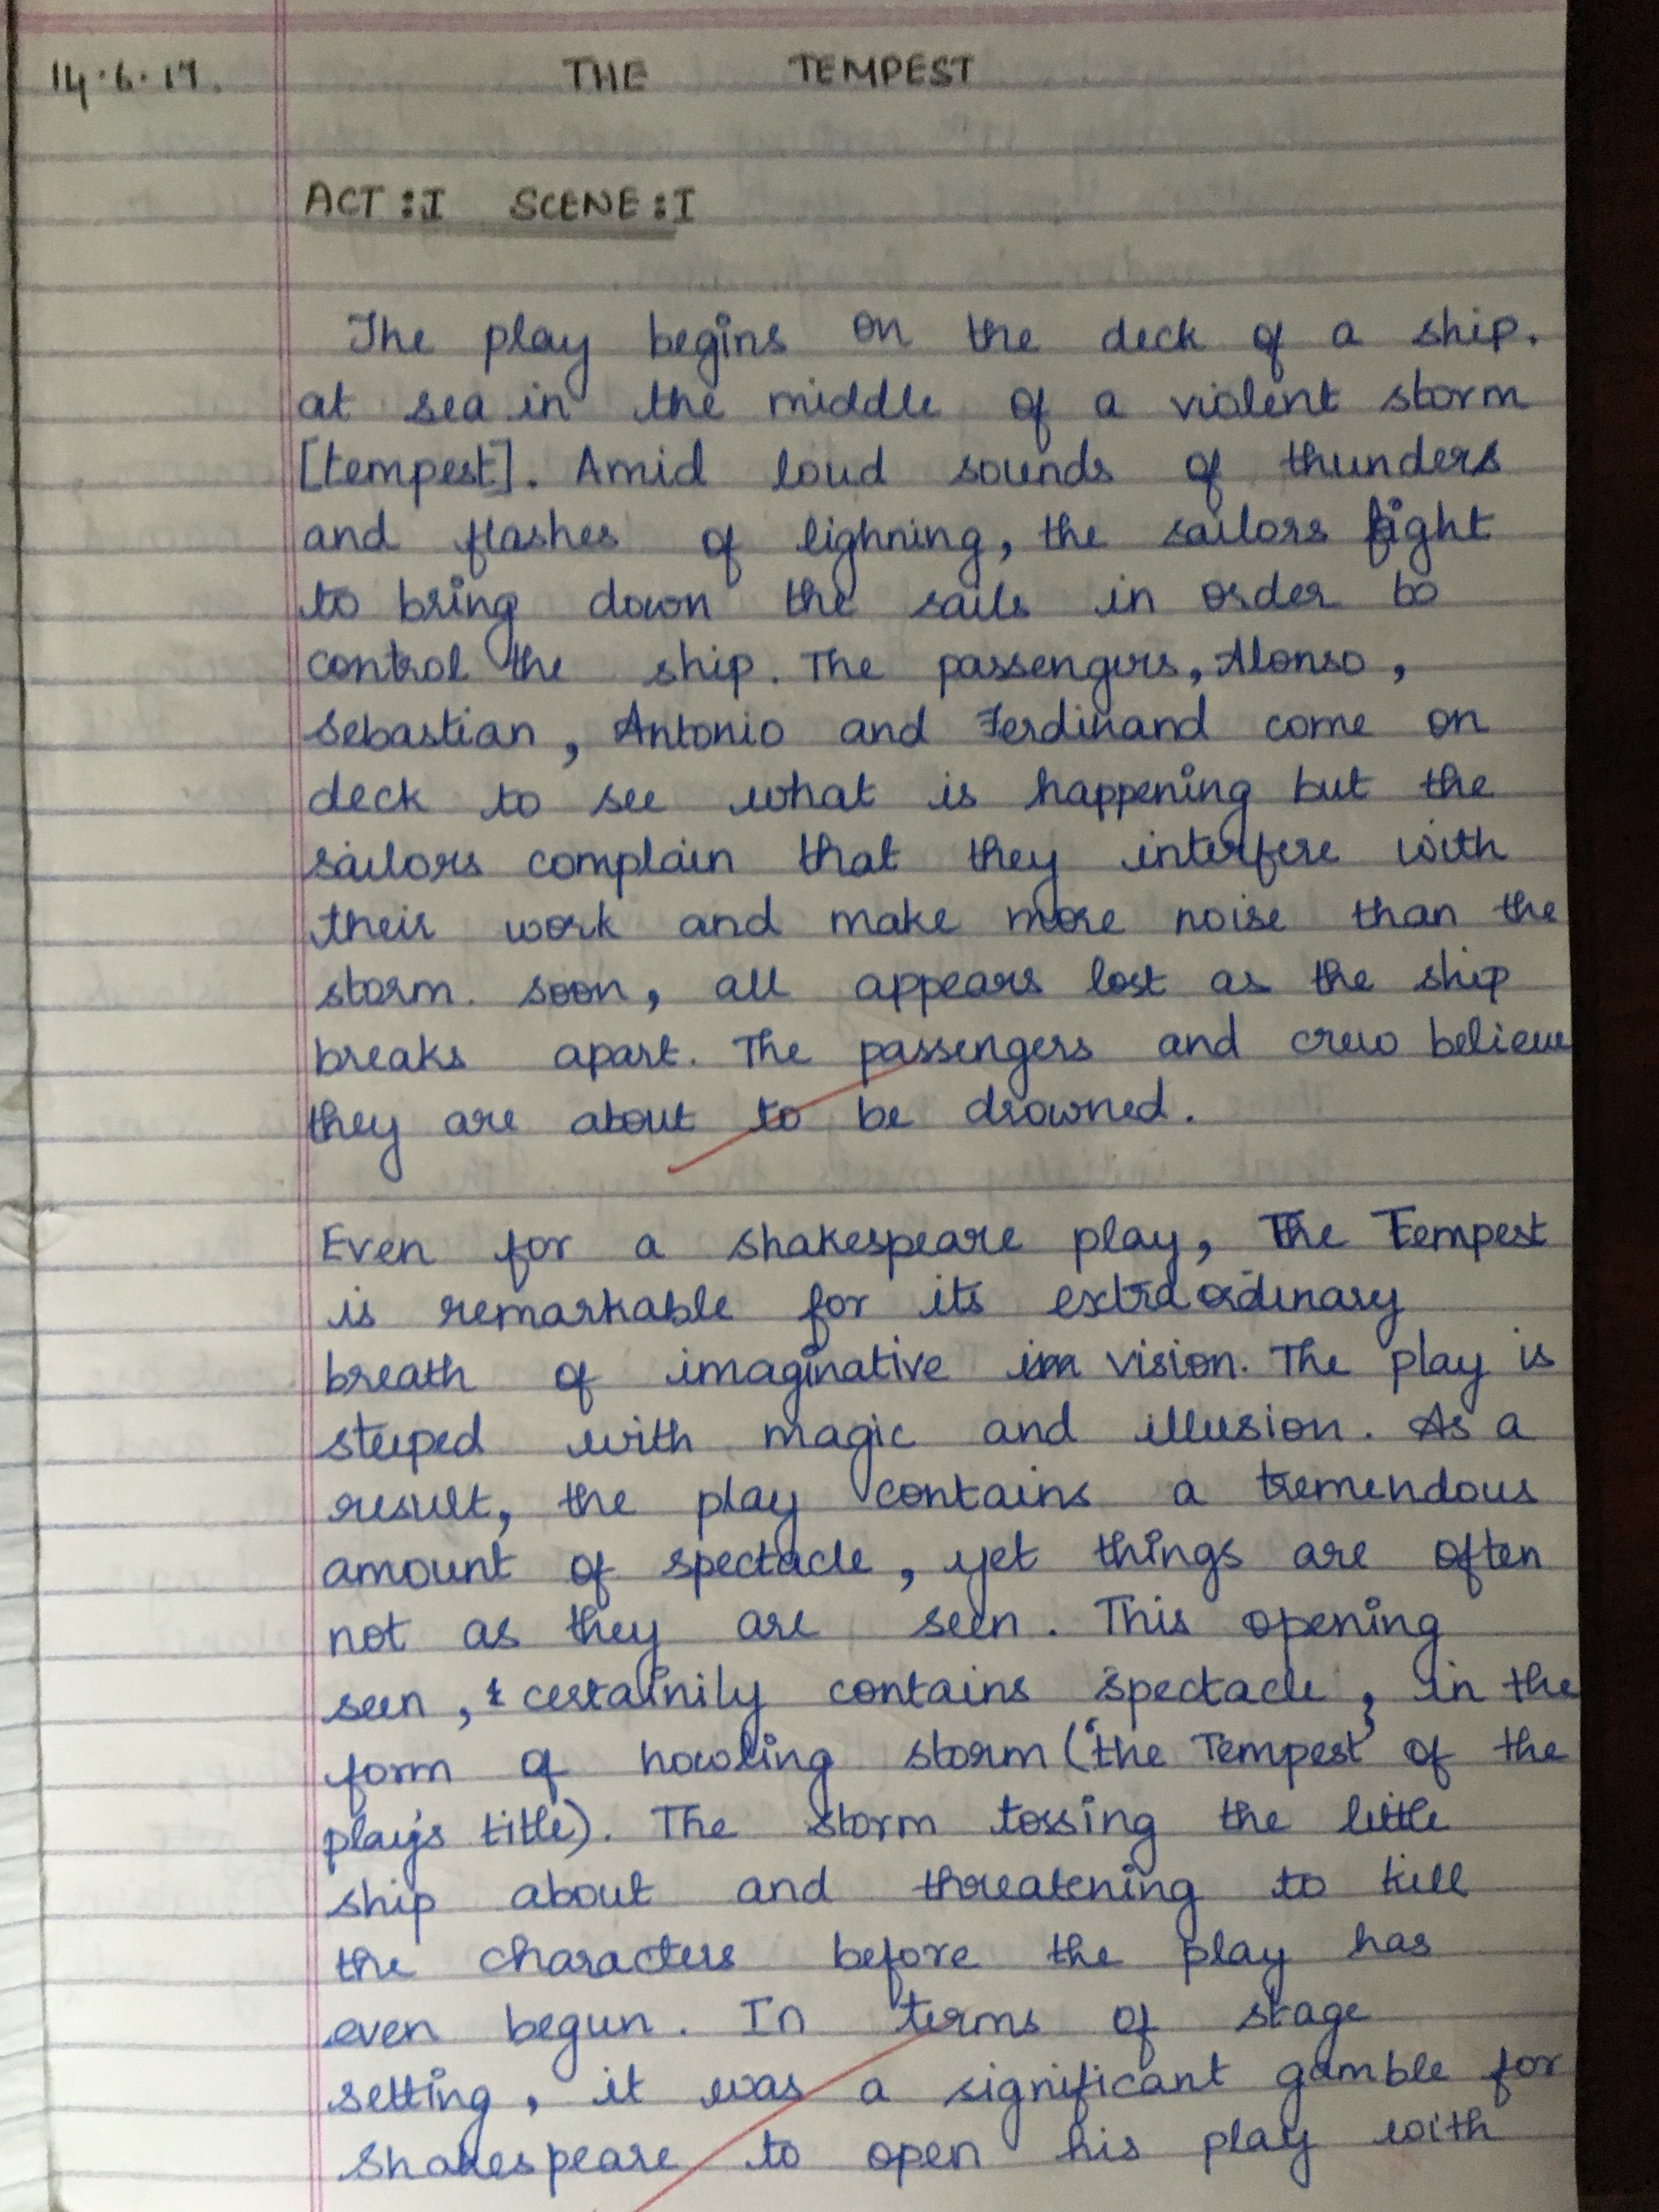 14.6.17. THE TEMPEST
ACT:I SCENE:I
The play begins on the deck of a ship.
at sea in the middle of a violent storm
[tempest]. Amid loud sounds of thunders
and flashes of lighning, the sailors fight
to bring down the sails in order to
control the ship. The passengers, Alonso,
Sebastian, Antonio and Ferdinand come on
deck to see what is happening but the
sailors complain that they interfere with
their work and make more noise than the
storm. soon, all appears lost as the ship
breaks apart. The passengers and crew believe
they are about to be drowned.
Even for a shakespeare play, The Tempest
is remarkable for its extraordinary
breath of imaginative vision. The play is
steeped with magic and illusion. As a
result, the play contains a tremendous
amount of spectacle, yet things are often
not as they are seen. This opening
seen, certainily contains spectacle, in the
form of howling storm ('the Tempest' of the
play's title). The storm tossing the little
ship about and threatening to kill
the characters before the play has
even begun. In terms of stage
setting, it was a significant gamble for
Shakespeare to open his play with